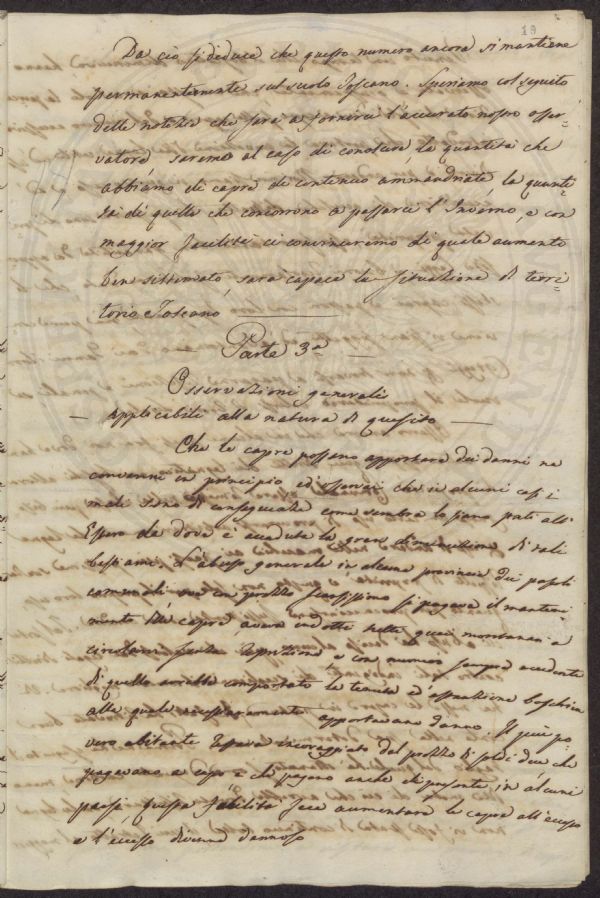 19
Da ciò si deduce che questo numero ancora si mantiene
permanentemente sul suolo Toscano. Speriamo col seguito
delle notizie che sarà a fornirci l'accurato nostro osser=
vatore, saremo al caso di conoscere, le quantità che
abbiamo di capre di continuo ammandriate, la quanti=
tà di quelle che concorrono a passarci l'Inverno, e con
maggior facilità ci convinceremo di quale aumento
ben sistemato, sarà capace la situazione di terri=
torio Toscano
Parte 3ª
Osservazioni generali
applicabili alla natura di quesito
Che le capre possano apportare dei danni ne
convenni in principio, ed osservai che in alcuni casi i
mali sono di conseguenza come sembra lo siano stati all'
Estero da dove è accaduta la gran diminuzione di tali
bestiami. L'abuso generale in alcune provincie dei pascoli
comunali ove un prezzo scarsissimo si pagava il manteni
mento delle capre, aveva indotte nelle montanari a
circolare senza e con numero sempre eccedente
di quello avrebbe comportato la tenuta d'estensione boschiva
alla quale necessariamente apportavano danno. Il più po=
vero abitante restava incoraggiato dal prezzo di soldi due che
pagavano a capo e che pagano anche di presente, in alcuni
paesi, questa facilità fece aumentare le capre all'eccesso
e l'eccesso divenne dannoso